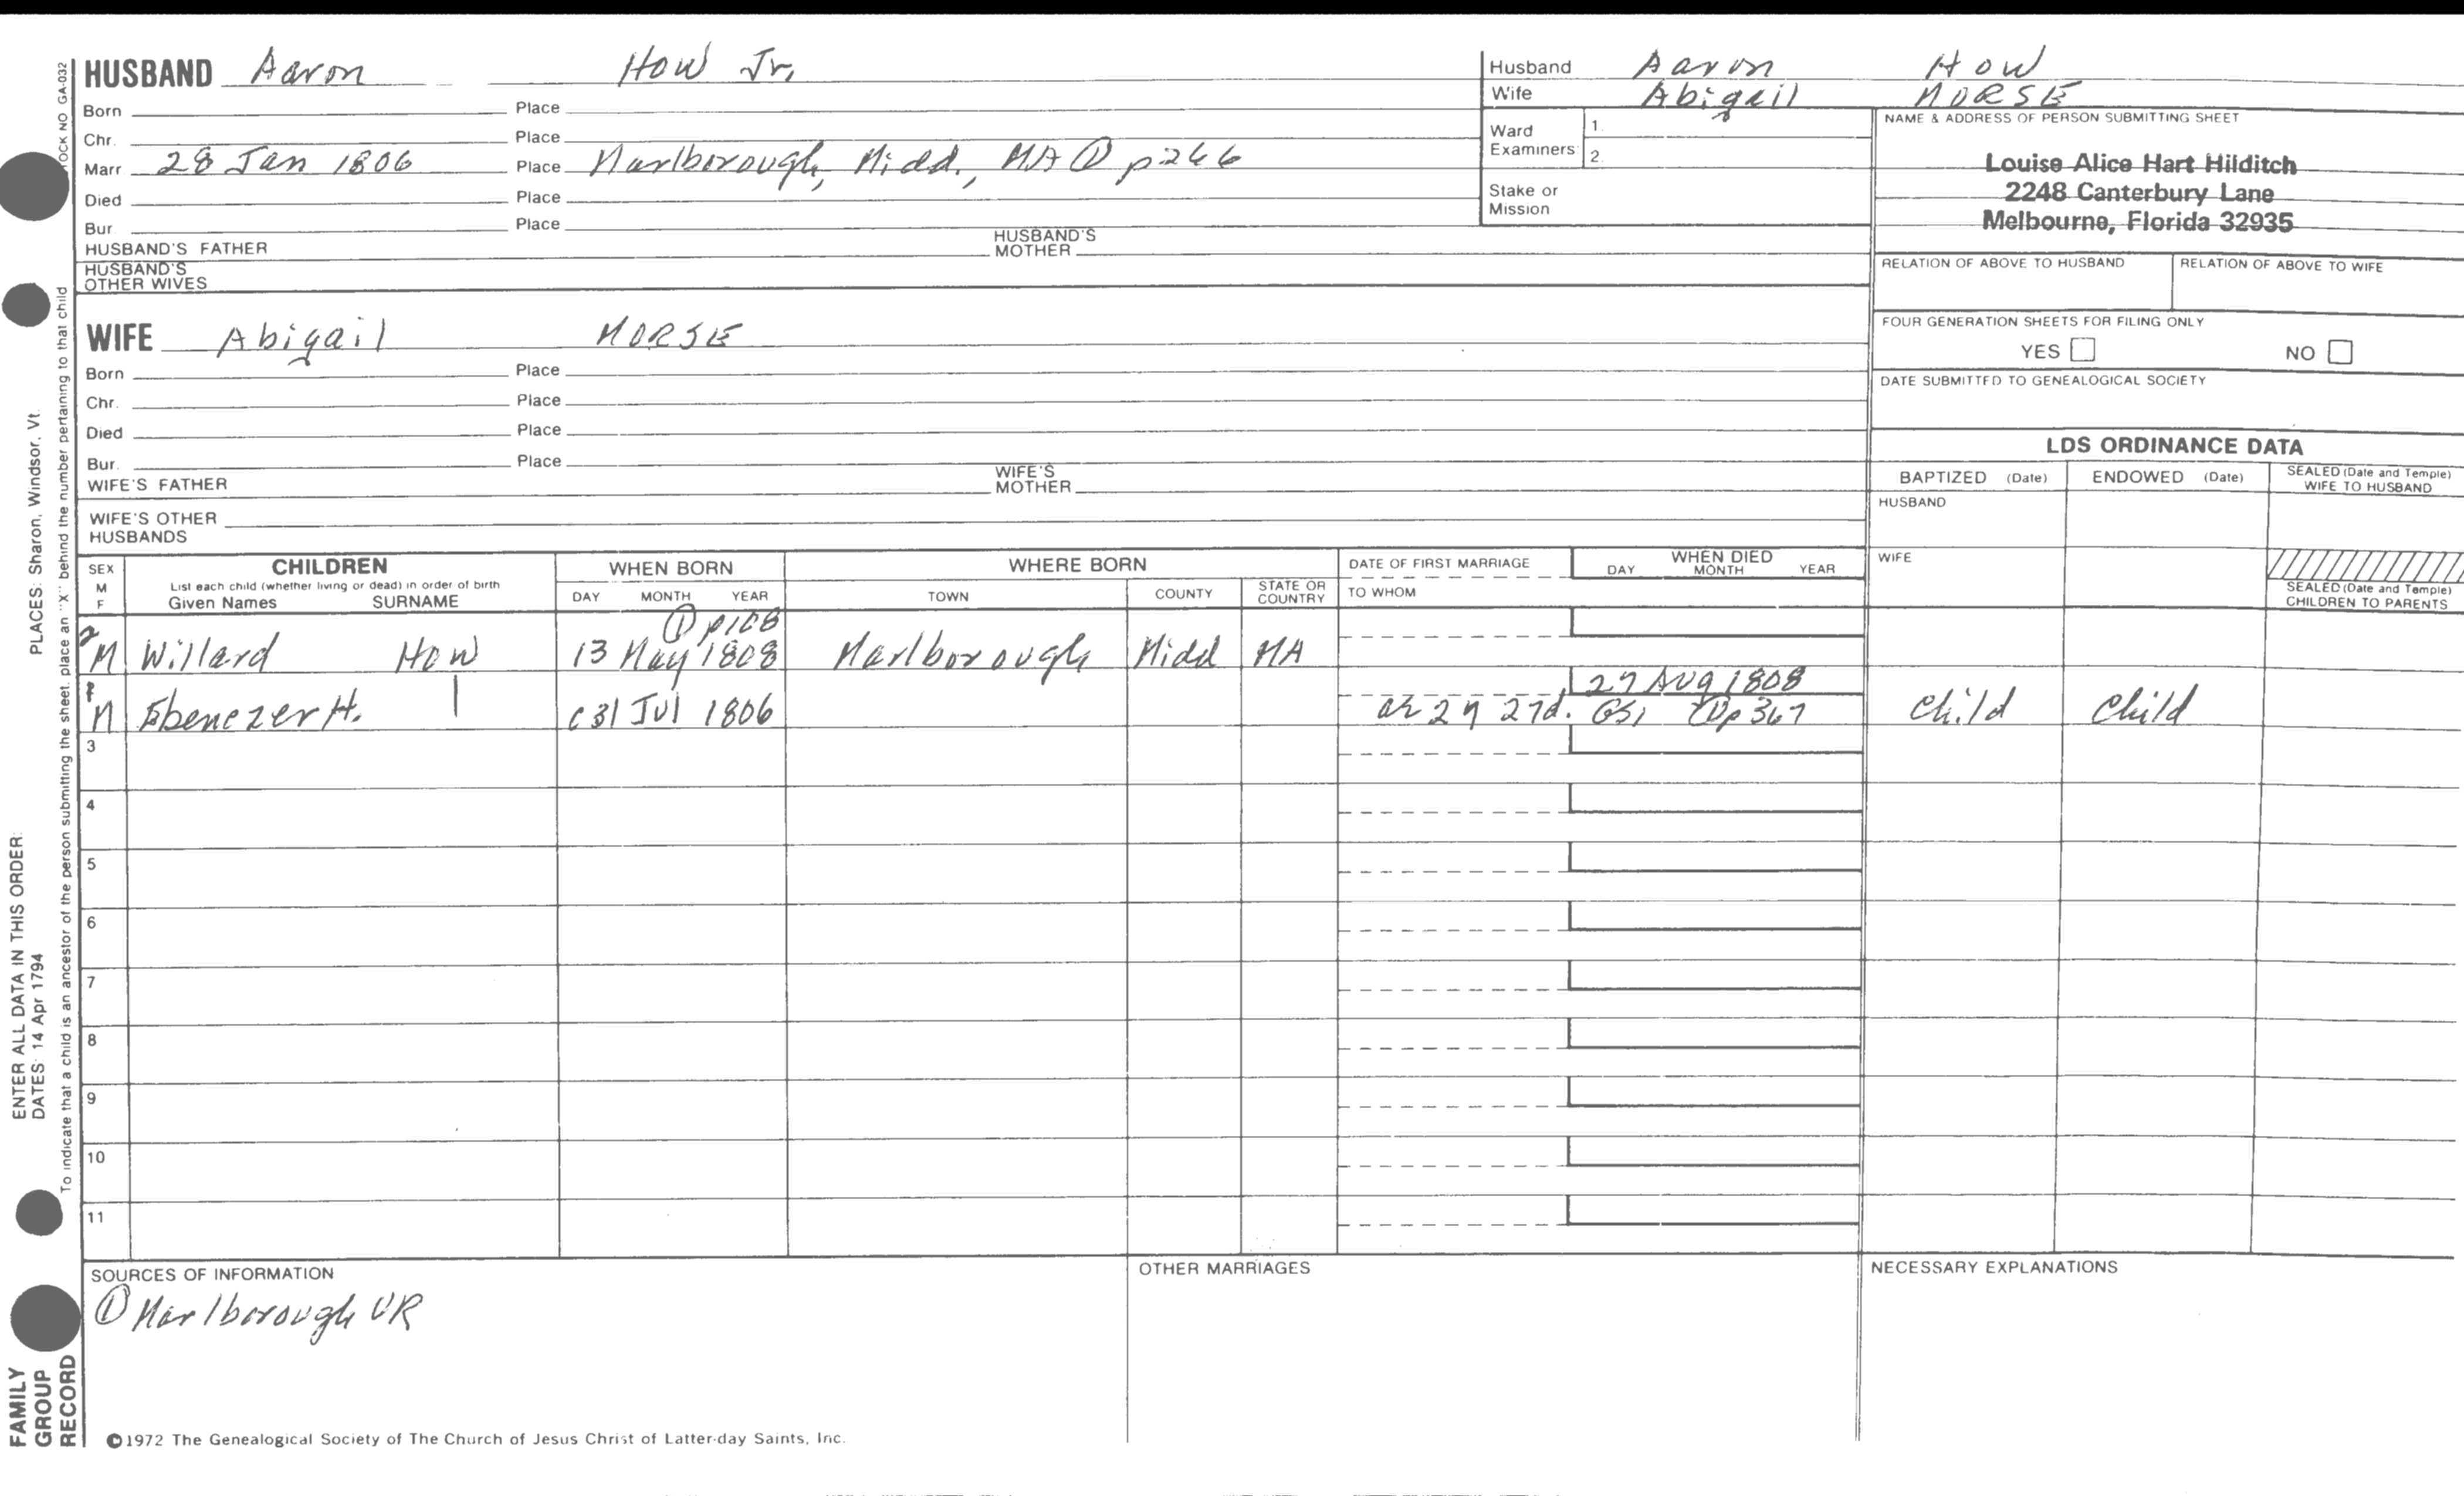 HUSBAND Aaron How Jr.
Born Place
Chr. Place
Marr 28 Jan 1806 Place Marlborough, Midd., MA ① p266
Died Place
Bur. Place
HUSBAND'S FATHER HUSBAND'S MOTHER
HUSBAND'S OTHER WIVES
Husband Aaron How
Wife Abigail MORSE
Ward Examiners 1. 2.
Stake or Mission
NAME & ADDRESS OF PERSON SUBMITTING SHEET
Louise Alice Hart Hilditch
2248 Canterbury Lane
Melbourne, Florida 32935
RELATION OF ABOVE TO HUSBAND RELATION OF ABOVE TO WIFE
FOUR GENERATION SHEETS FOR FILING ONLY
YES NO
DATE SUBMITTED TO GENEALOGICAL SOCIETY
WIFE Abigail MORSE
Born Place
Chr. Place
Died Place
Bur. Place
WIFE'S FATHER WIFE'S MOTHER
WIFE'S OTHER HUSBANDS
LDS ORDINANCE DATA
BAPTIZED (Date) ENDOWED (Date) SEALED (Date and Temple) WIFE TO HUSBAND
HUSBAND
WIFE
SEALED (Date and Temple) CHILDREN TO PARENTS
SEX M F
CHILDREN
List each child (whether living or dead) in order of birth
Given Names SURNAME
WHEN BORN
DAY MONTH YEAR
WHERE BORN
TOWN COUNTY STATE OR COUNTRY
DATE OF FIRST MARRIAGE
TO WHOM
WHEN DIED
DAY MONTH YEAR
① p108
2 M Willard How 13 May 1808 Marlborough Midd MA
27 Aug 1808
1 M Ebenezer H. | c 31 Jul 1806 ae 2y 27d. GS1 ① p367 Child Child
3
4
5
6
7
8
9
10
11
SOURCES OF INFORMATION
① Marlborough VR
OTHER MARRIAGES
NECESSARY EXPLANATIONS
©1972 The Genealogical Society of The Church of Jesus Christ of Latter-day Saints, Inc.
FAMILY GROUP RECORD
ENTER ALL DATA IN THIS ORDER:
DATES: 14 Apr 1794
PLACES: Sharon, Windsor, Vt.
To indicate that a child is an ancestor of the person submitting the sheet, place an "X" behind the number pertaining to that child
OCK NO GA-032